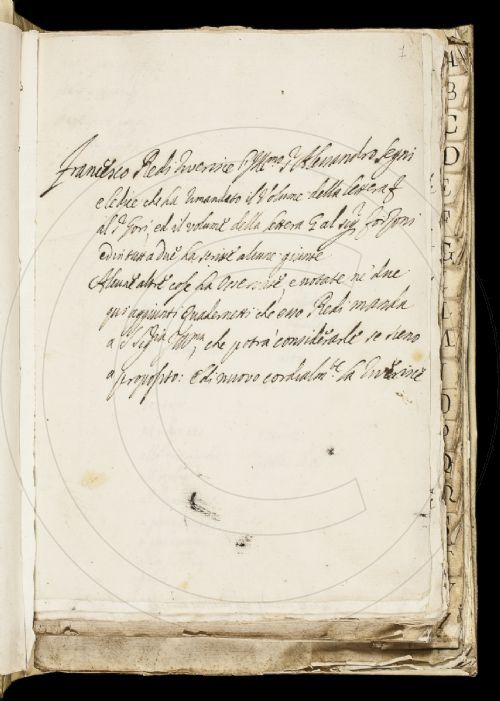 1
Francesco Redi riverisce l'Ill.mo S. Alessandro Segni
e le dice che ha rimandato il Volume della lettera F
al S. Gori, ed il volume della lettera G al sig.r
ed in tutti a due ha scritte alcune giunte
Alcune altre cose ha osservate, e notate ne' due
qui aggiunti Quadernetti che esso Redi manda
a V. Sig.ria Ill.ma, che potrà considerarle se sieno
a proposito: e di nuovo cordialm.te la riverisce
A
B
C
D
E
F
G
I
L
M
N
O
P
Q
R